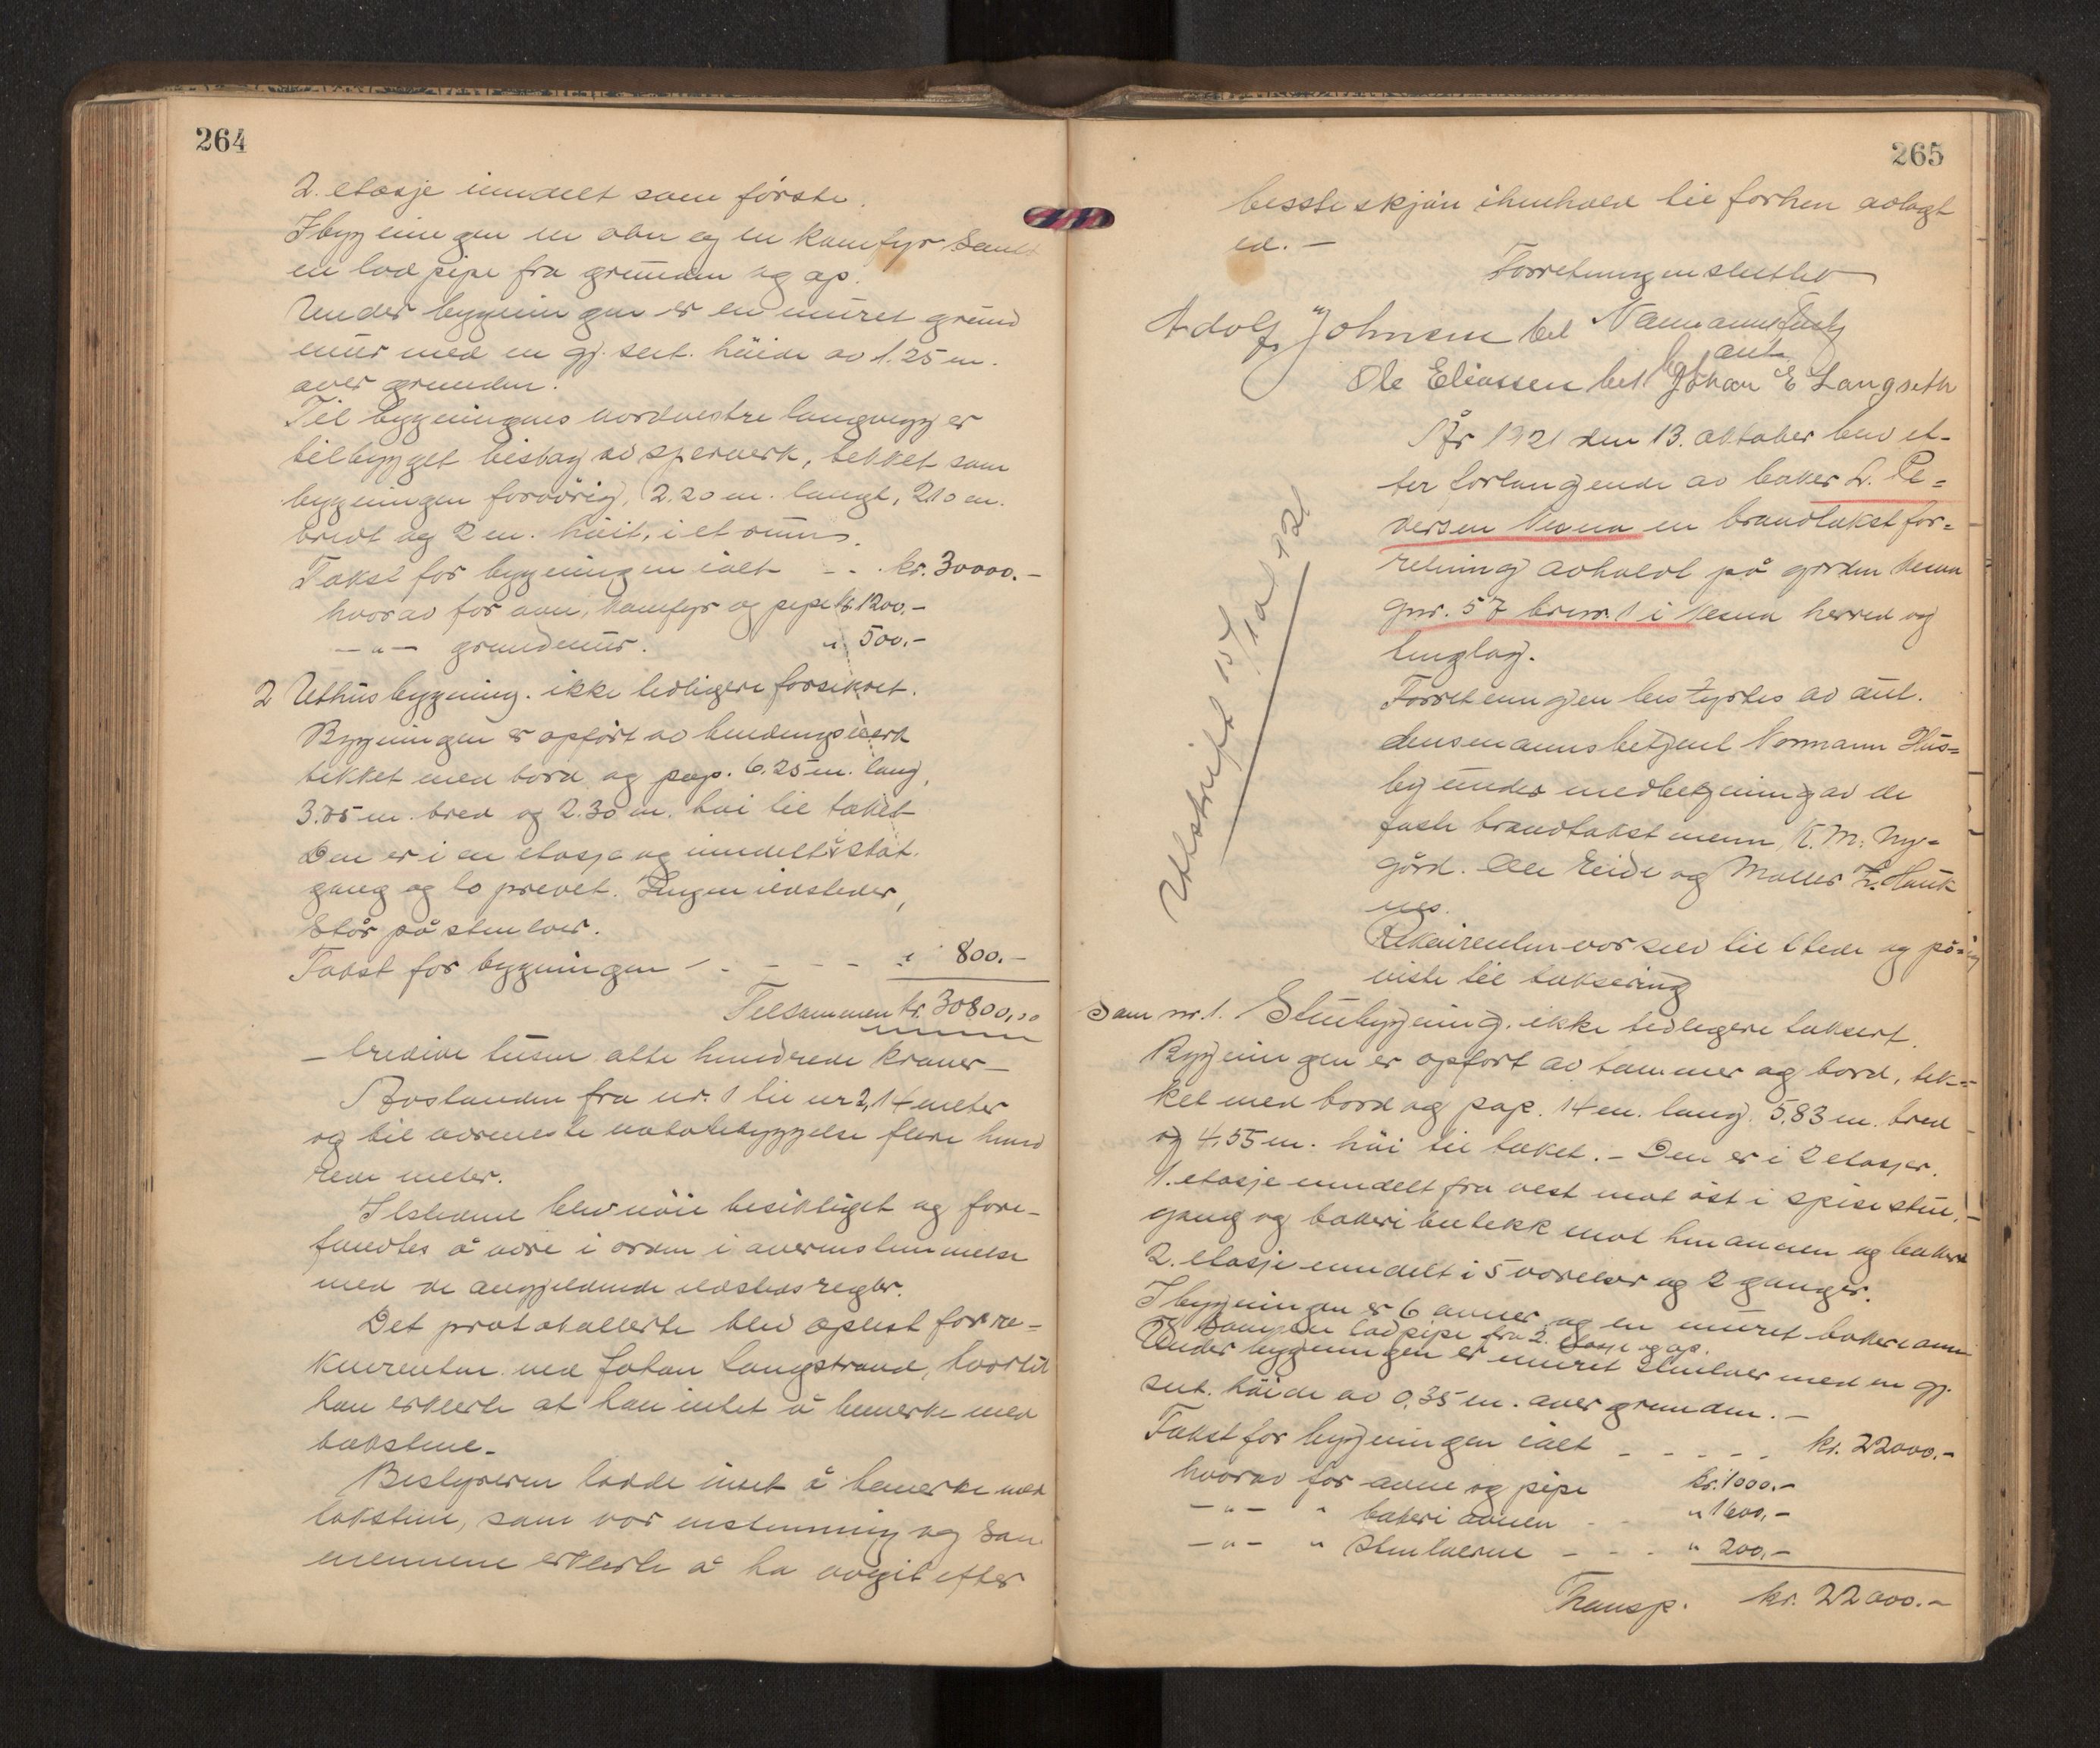 264
2. etasje inndelt som første.
I bygningen er en ovn og en komfyr samt
en lod pipe fra grunnen og op.
Under bygningen er en muret grund
mur med en gj. snt. høide av 1.25 m.
over grunden.
Til bygningens nordvestre langvegg er
tilbygget bislag av sperverk, tekket som
bygningen forøvrig, 2.20 m. langt, 2.10 m.
bredt og 2 m. høit, i et rum.
Takst for bygningen ialt - - . kr. 30000.-
hvorav for ovn, komfyr og pipe kr. 1200.-
-"- grundmur. " 500.-
2 Uthusbygning. ikke tidligere forsikret.
Bygningen er opført av bindingsverk
tekket med bord og pap. 6.25 m. lang,
3.85 m. bred og 2.30 m. høi til taket
Den er i en etasje og inndelt i
gang og to prevet. Ingen ildsteder,
Står på stenlær.
Takst for bygningen - - - - - " 800.-
Tilsammen kr. 30800,00
- tredive tusen otte hundrede kroner -
Avstanden fra nr. 1 til nr 2, 14 meter
og til nærmeste nabobebyggelse flere hund
rede meter.
Ilstedene blev nøie besiktiget og fore-
fundtes å være i orden i overenstemmelse
med de angjeldende ildstedsregler.
Det protokollerte blev oplest for re-
kvirenten ved Johan Langstrand, hvortil
han erklerte at han intet å bemerke med
takstene.
Bestyreren hadde intet å bemerke med
takstene, som var enstemmig og
mennene erklerte å ha avgit efter
265
beste skjøn ihenhold til forhen avlagt
ed. -
Forretningen sluttet
Adolf Johnsen bet Normann Husby
aut.
Ole Eliassen bet Johan E Langseth
År 1921 den 13. oktober blev et-
ter forlangende av baker L. Pe-
dersen Nesna en brandtakstfor-
retning avholdt på gården Nesna
gnr. 57 brnr. 1 i Nesna herred og
tinglag.
Forretningen bestyrtes av aut.
lensmannsbetjent Normann Hus-
by under medbetjening av de
faste brandtakstmenn, K. M. Ny-
gård. Ole Eide og L. Hauk
nes.
Rekvirenten var selv til stede og på-
viste til taksering
Utskrift 21
Som nr. 1. Stuebygning, ikke tidligere taksert.
Bygningen er opført av tømmer og bord, tek-
ket med bord og pap. 14 m. lang. 5,83 m. bred
og 4,55 m. høi til taket. - Den er i 2 etasjer.
1. etasje inndelt fra vest mot øst i spisestue,
gang og bakeributikk mot hinannen og bakeri
2. etasje inndelt i 5 værelser og 2 ganger.
I bygningen er 6 ovner og en muret bakeriovn
samt en lodpipe fra 2. etasje og op.
Under bygningen er muret stenlær med en gj.
snt. høide av 0,35 m. over grunden. -
Takst for bygningen ialt - - - - - kr. 22000.-
hvorav for ovne og pipe kr. 1000.-
-"- " bakeri ovnen - - " 1600,-
-"- " stenlærne - - - " 200,-
Transp. kr. 22000.-